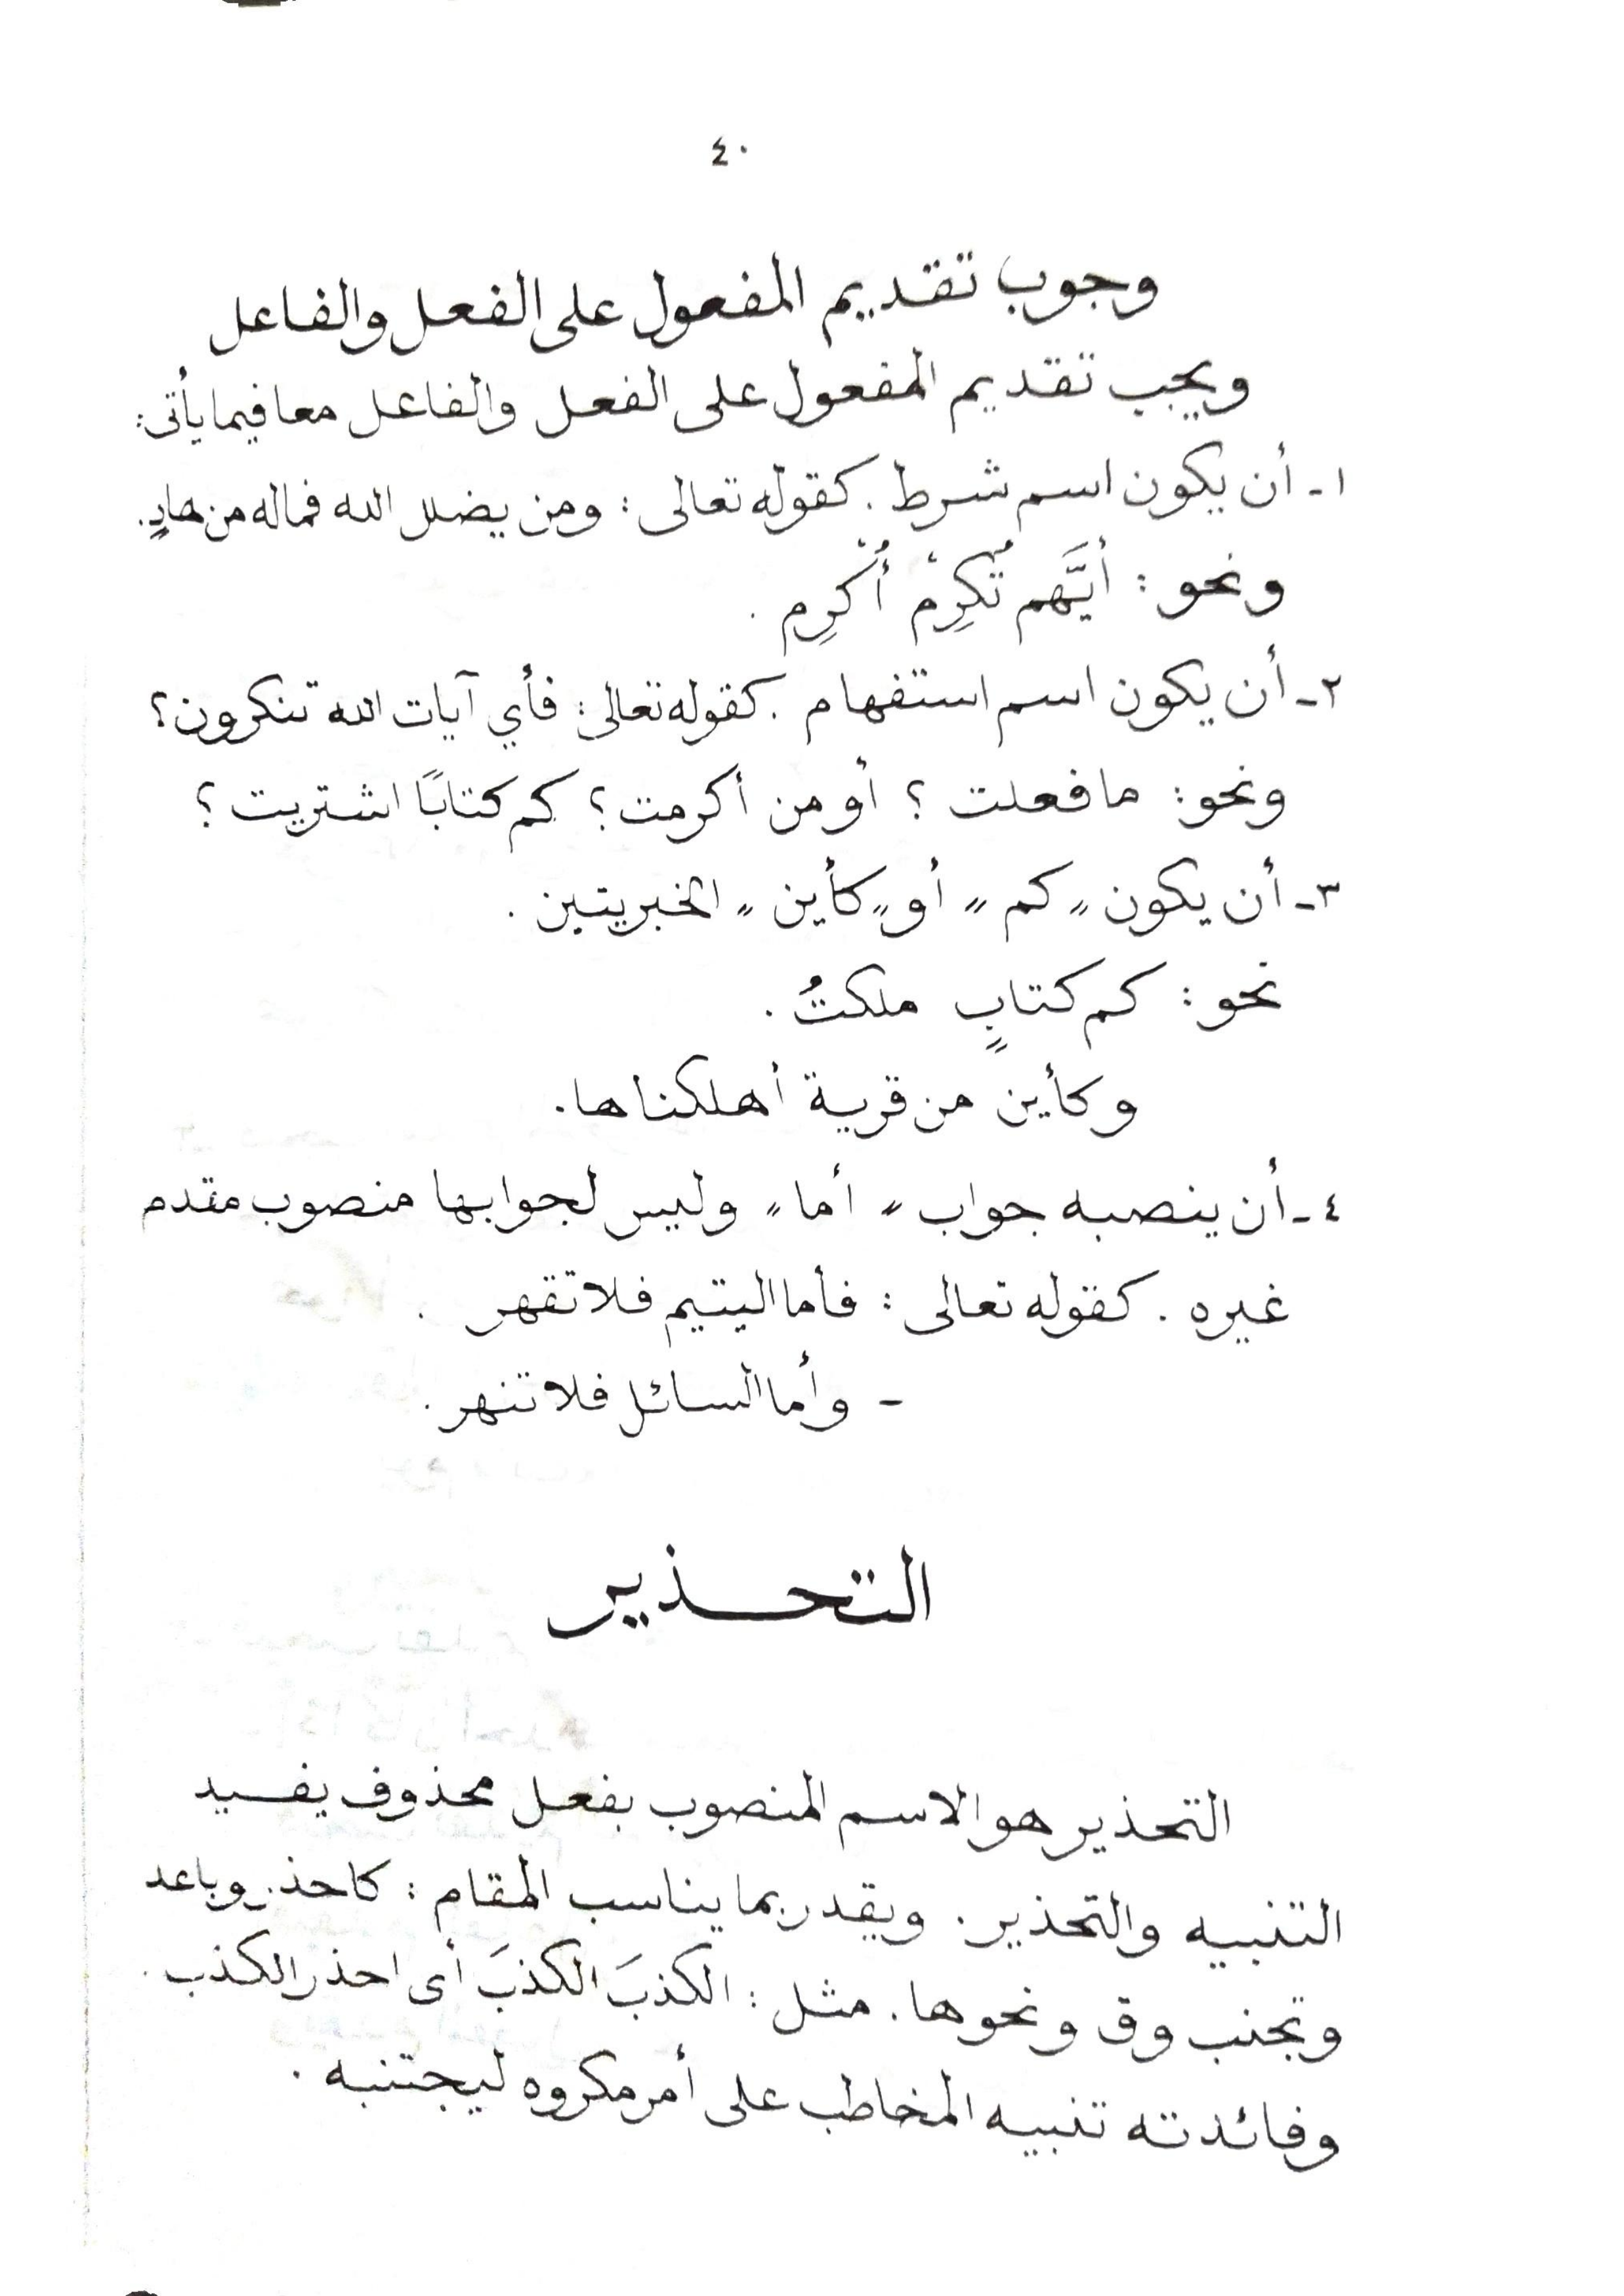 ٤٠
وجوب تقديم المفعول على الفعل والفاعل
ويجب تقديم المفعول على الفعل والفاعل معا فيما يأتى:
١- أن يكون اسم شرط. كقوله تعالى: ومن يضلل الله فماله من هادٍ.
ونحو: أيَّهم تُكرِمْ أُكْرِم.
٢- أن يكون اسم استفهام. كقوله تعالى: فأي آيات الله تنكرون؟
ونحو: ما فعلت؟ أو من أكرمت؟ كم كتابًا اشتريت؟
٣- أن يكون "كم" أو "كأين" الخبريتين.
نحو: كم كتابٍ ملكتُ.
وكأين من قرية أهلكناها.
٤- أن ينصبه جواب "أما" وليس لجوابها منصوب مقدم
غيره. كقوله تعالى: فأما اليتيم فلا تقهر.
- وأما السائل فلا تنهر.
التحذير
التحذير هو الاسم المنصوب بفعل محذوف يفيد
التنبيه والتحذير. ويقدر بما يناسب المقام: كاحذر وباعد
وتجنب وق ونحوها. مثل: الكذبَ الكذبَ أى احذر الكذب.
وفائدته تنبيه المخاطب على أمر مكروه ليجتنبه.